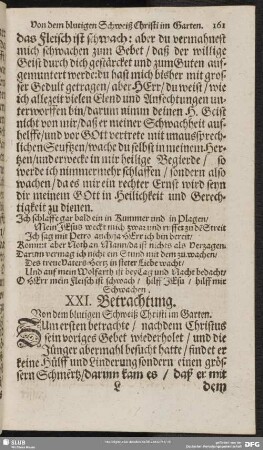 Von dem blutigen Schweiß Christi im Garten. 161
das Fleisch ist schwach: aber du vermahnest
mich schwachen zum Gebet / daß der willige
Geist durch dich gestärcket und zum Guten auf-
gemuntert werde: du hast mich bisher mit gros-
ser Gedult getragen / aber HErr / du weist / wie
ich allezeit vielen Elend und Anfechtungen un-
terworffen bin / darum nimm deinen H. Geist
nicht von mir / daß er meiner Schwachheit auf-
helffe / und vor GOtt vertrete mit unaussprech-
lichen Seuftzen / wache du selbst in meinem Her-
tzen / und erwecke in mir heilige Beglerde / so
werde ich nimmermehr schlaffen / sondern also
wachen / da es mir ein rechter Ernst wird seyn
dir meinem GOtt in Heiligkeit und Gerech-
tigkeit zu dienen.
Ich schlaffe gar bald ein in Kummer und in Plagen /
Mein JEsus weckt mich zwar und ruffet zu de Streit
Ich sag mit Petro auch: ja HErr ich bin bereit /
Kommt aber Noth an Mann / da ist nichts als Verzagen.
Darum vermag ich nicht ein Stund mit dem zu wachen /
Des treue Vaters-Hertz in steter Liebe wacht /
Und auf mein Wolfarth ist bey Tag und Nacht bedacht
O HErr mein Fleisch ist schwach / hilff JEsu / hilff mir
Schwachen.
XXI. Betrachtung.
Von dem blutigen Schweiß Christi im Garten.
ZUm ersten betrachte / nachdem Christus
sein voriges Gebet wiederholet / und die
Jünger abermahl besucht hatte / findet er
keine Hülff und Linderung sondern einen grös-
sern Schmertz / darum kam es / daß er mit
L dem
SLUB